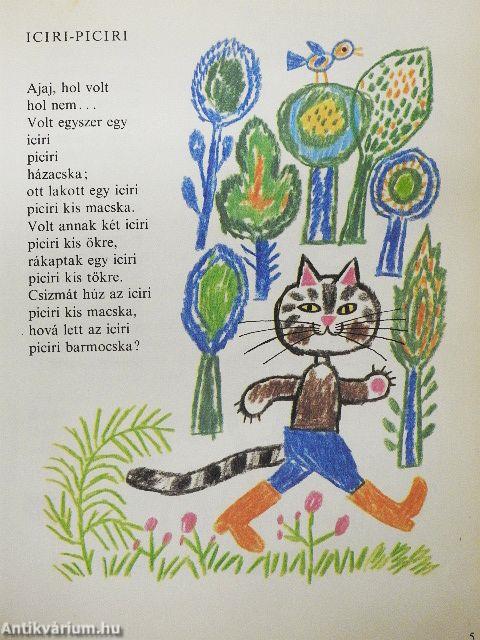 ICIRI-PICIRI
Ajaj, hol volt
hol nem...
Volt egyszer egy
iciri
piciri
házacska;
ott lakott egy iciri
piciri kis macska.
Volt annak két iciri
piciri kis ökre,
rákaptak egy iciri
piciri kis tökre.
Csizmát húz az iciri
piciri kis macska,
hová lett az iciri
piciri barmocska?
Antikvárium.hu
5